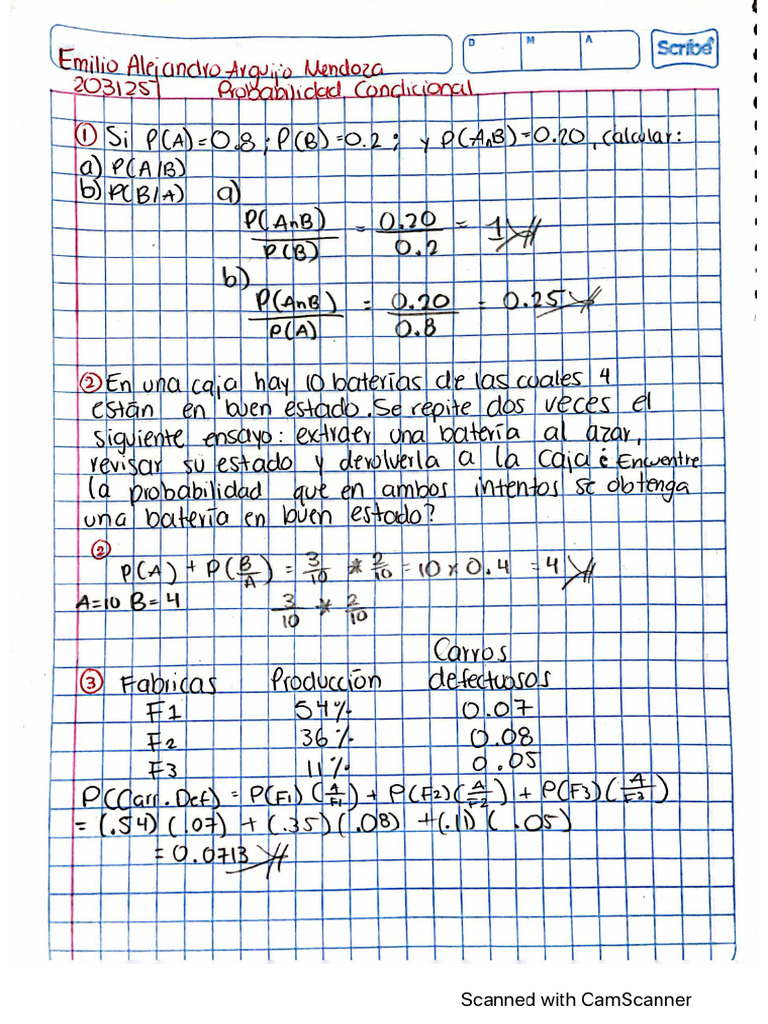 D M A Scribe
Emilio Alejandro Arguijo Mendoza
2031257 Probabilidad Condicional
① Si P(A)=0.8; P(B)=0.2; y P(A∩B)=0.20, calcular:
a) P(A/B)
b) P(B/A) a)
P(A∩B) / P(B) = 0.20 / 0.2 = 1
b)
P(A∩B) / P(A) = 0.20 / 0.8 = 0.25
② En una caja hay 10 baterías de las cuales 4
están en buen estado. Se repite dos veces el
siguiente ensayo: extraer una batería al azar,
revisar su estado y devolverla a la caja ¿ Encuentre
la probabilidad que en ambos intentos se obtenga
una batería en buen estado?
②
P(A) + P(B/A) = 3/10 * 2/10 = 10 x 0.4 = 4
A=10 B=4 3/10 * 2/10
Carros
③ Fabricas Producción defectuosos
F1 54% 0.07
F2 36% 0.08
F3 11% 0.05
P(Carr. Def) = P(F1)(A/F1) + P(F2)(A/F2) + P(F3)(A/F3)
= (.54)(.07) + (.35)(.08) + (.11)(.05)
= 0.0713
Scanned with CamScanner